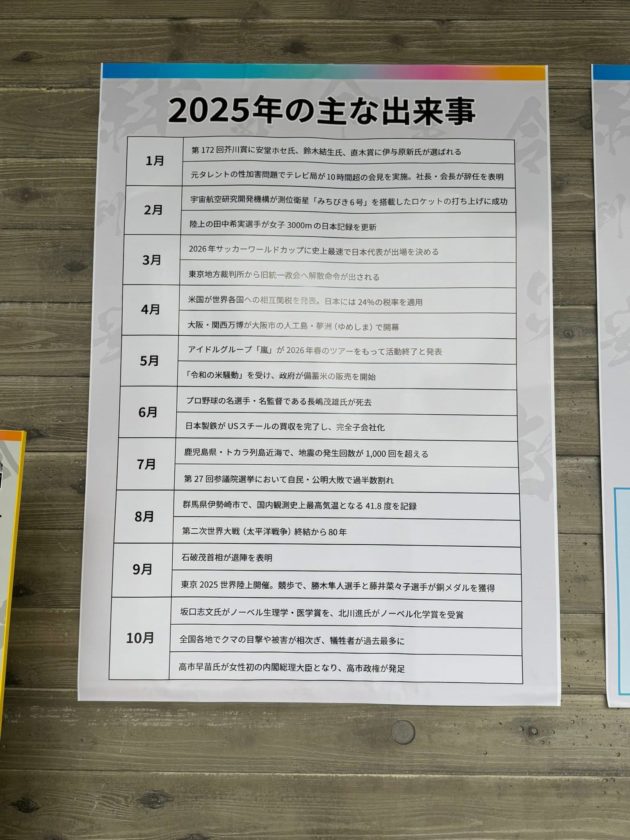 2025年の主な出来事
1月
第172回芥川賞に安堂ホセ氏、鈴木結生氏、直木賞に伊与原新氏が選ばれる
元タレントの性加害問題でテレビ局が10時間超の会見を実施。社長・会長が辞任を表明
2月
宇宙航空研究開発機構が測位衛星「みちびき6号」を搭載したロケットの打ち上げに成功
陸上の田中希実選手が女子3000mの日本記録を更新
3月
2026年サッカーワールドカップに史上最速で日本代表が出場を決める
東京地方裁判所から旧統一教会へ解散命令が出される
4月
米国が世界各国への相互関税を発表。日本には24%の税率を適用
大阪・関西万博が大阪市の人工島・夢洲（ゆめしま）で開幕
5月
アイドルグループ「嵐」が2026年春のツアーをもって活動終了と発表
「令和の米騒動」を受け、政府が備蓄米の販売を開始
6月
プロ野球の名選手・名監督である長嶋茂雄氏が死去
日本製鉄がUSスチールの買収を完了し、完全子会社化
7月
鹿児島県・トカラ列島近海で、地震の発生回数が1,000回を超える
第27回参議院選挙において自民・公明大敗で過半数割れ
8月
群馬県伊勢崎市で、国内観測史上最高気温となる41.8度を記録
第二次世界大戦（太平洋戦争）終結から80年
9月
石破茂首相が退陣を表明
東京2025世界陸上開催。競歩で、勝木隼人選手と藤井菜々子選手が銅メダルを獲得
10月
坂口志文氏がノーベル生理学・医学賞を、北川進氏がノーベル化学賞を受賞
全国各地でクマの目撃や被害が相次ぎ、犠牲者が過去最多に
高市早苗氏が女性初の内閣総理大臣となり、高市政権が発足